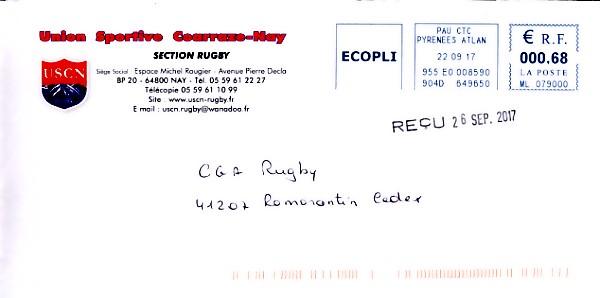 Union Sportive Coarraze-Nay
SECTION RUGBY
USCN
Siège Social : Espace Michel Raugier - Avenue Pierre Decla
BP 20 - 64800 NAY - Tél. 05 59 61 22 27
Télécopie 05 59 61 10 99
Site : www.uscn-rugby.fr
E mail : uscn.rugby@wanadoo.fr
ECOPLI
PAU CTC
PYRENEES ATLAN
22 09 17
955 E0 008590
904D 649650
€ R.F.
000.68
LA POSTE
ML 079000
REÇU 26 SEP. 2017
CGA Rugby
41207 Romorantin Cedex